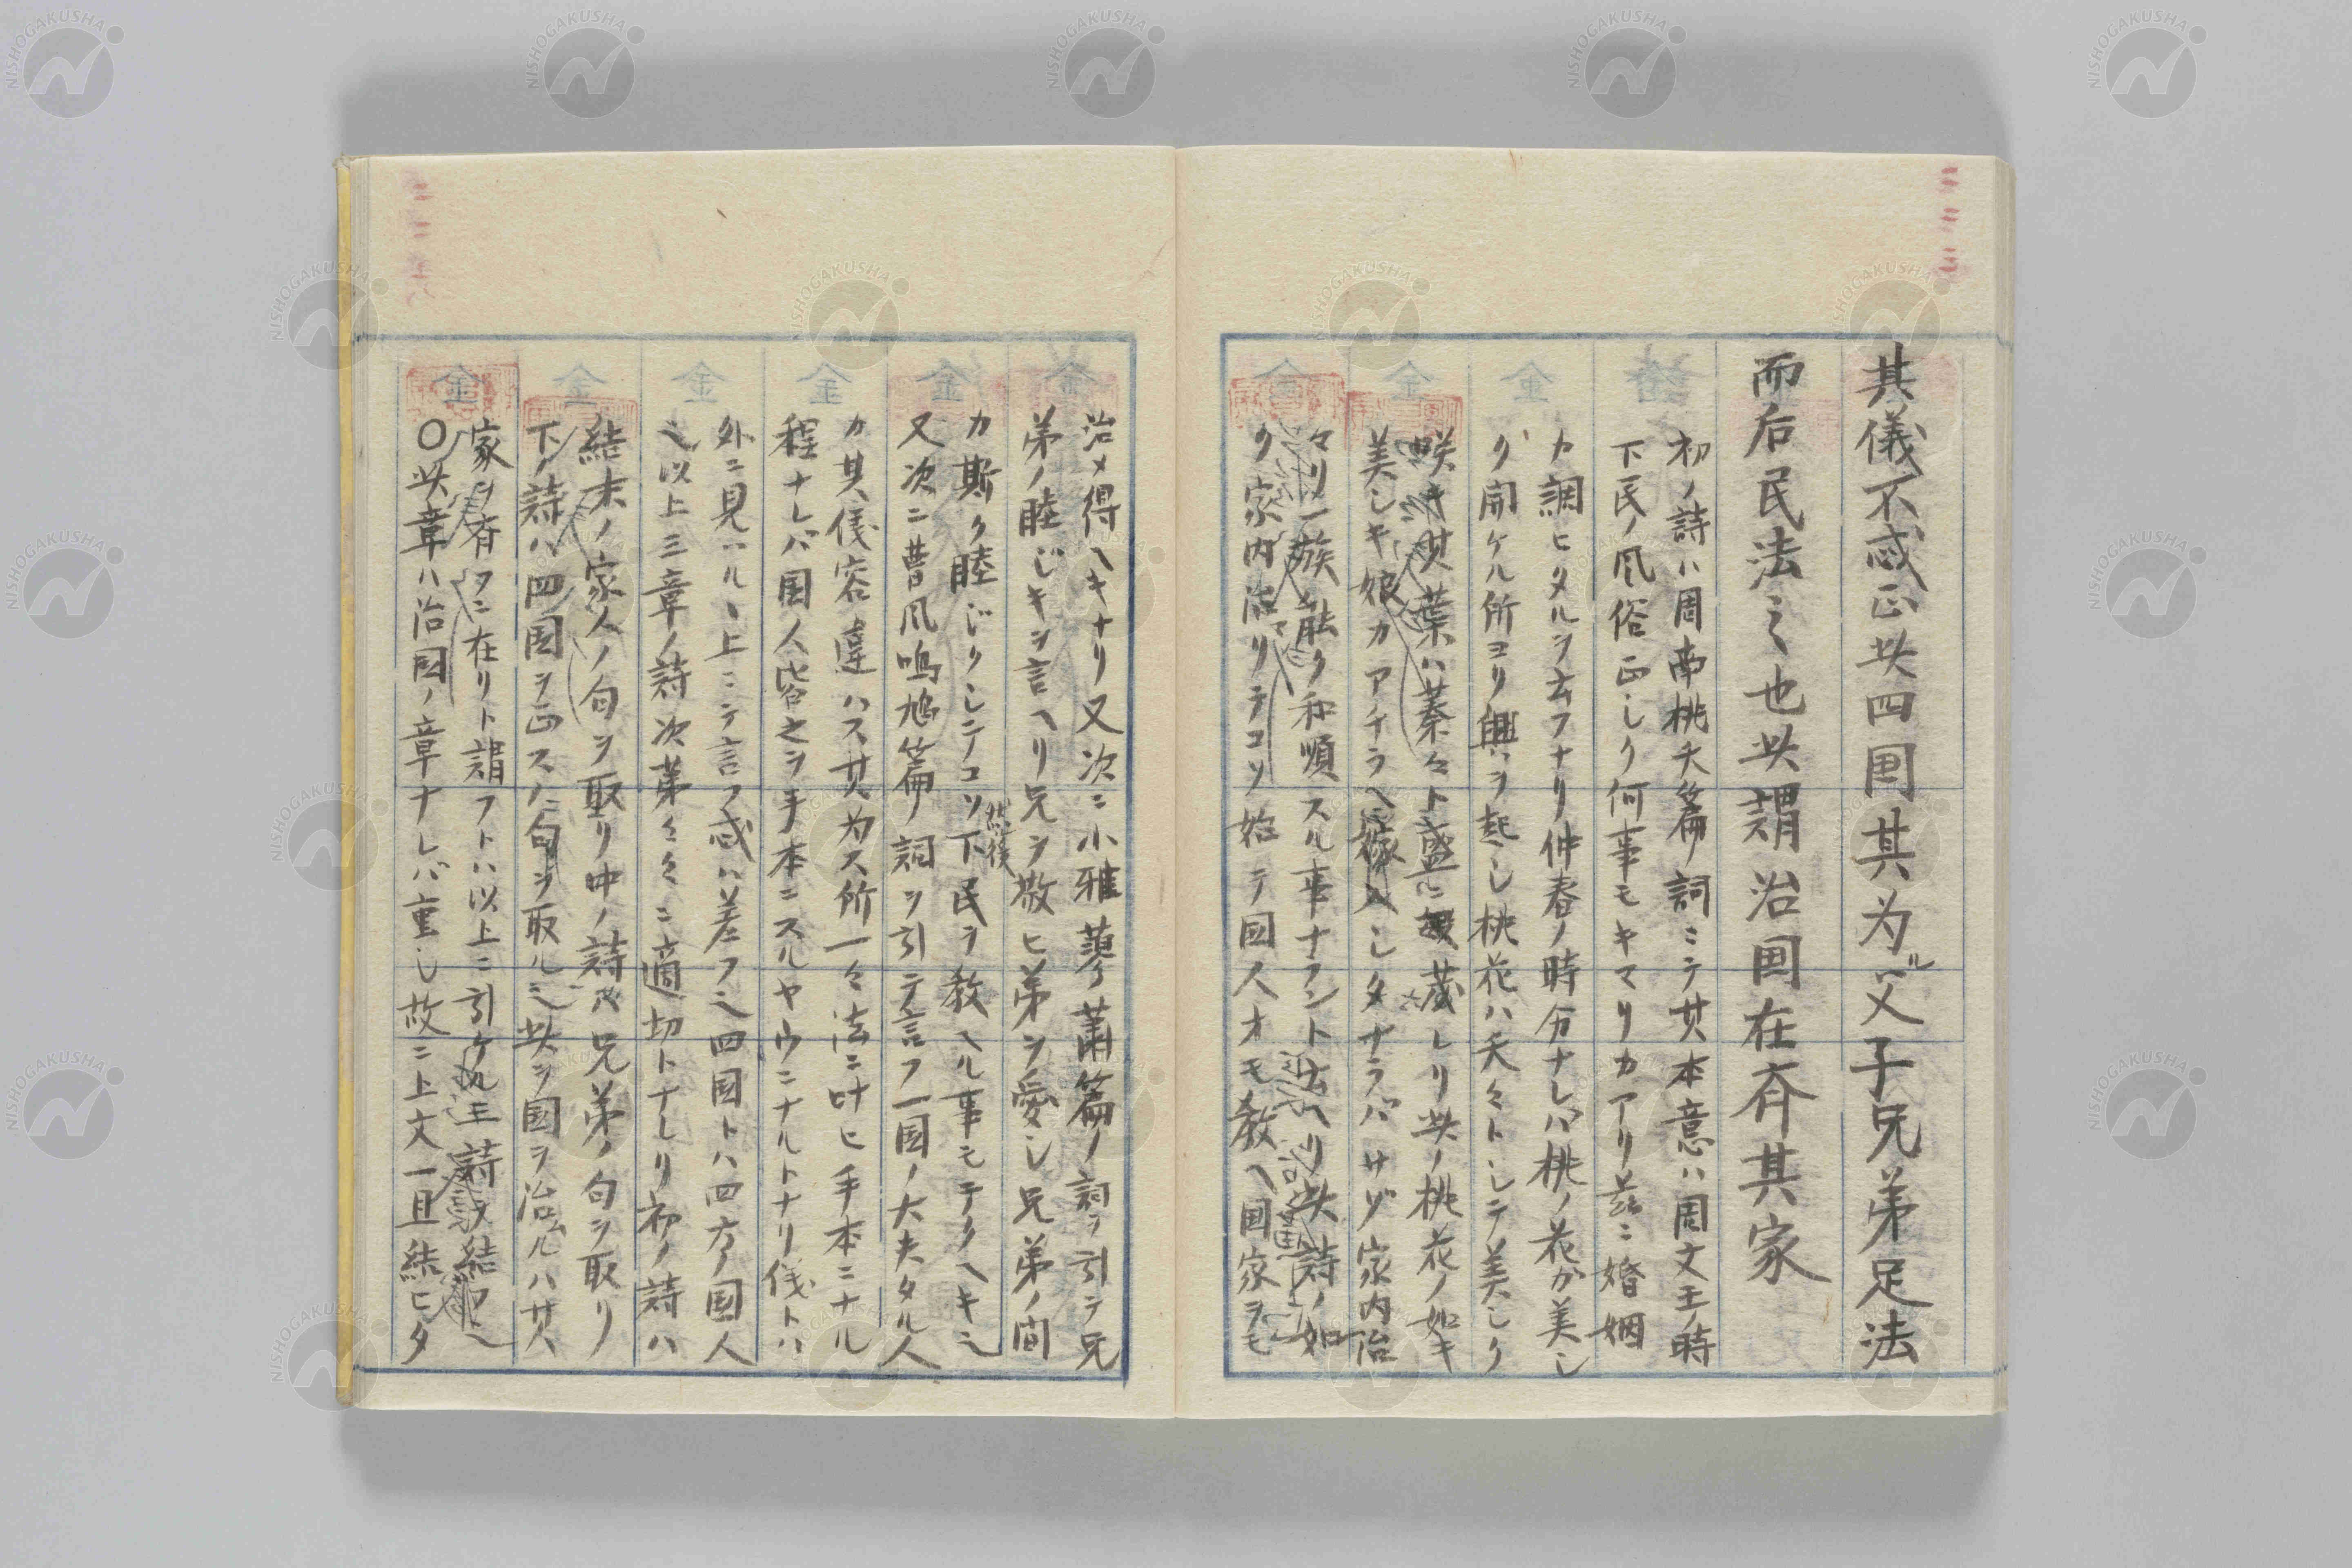 其儀不忒正此四国其为父子兄弟足法
而后民法之也此謂治国在斉其家
初ノ詩ハ周南桃夭篇ノ詞ニテ其本意ハ周文王ノ時
下民ノ風俗正シク何事モキマリカアリ茲ニ婚姻
カ調ヒタルヲ云フナリ仲春ノ時分ナレバ桃ノ花ガ美シ
ク開ケル所ヨリ興ヲ起シ桃花ハ夭々トシテ美シク
咲キ其葉ハ蓁々ト盛ニ茂レリ此ノ桃花ノ如キ
美シキ娘カアチラヘ嫁入シタナラバサゾ家内治
マリ一族能ク和順スル事ナラント云ヘリ此詩ノ如
ク家内治リテコソ始テ国人オモ教ヘ国家ヲモ
治メ得ヘキナリ又次ニ小雅蓼蕭篇ノ詞ヲ引テ兄
弟ノ睦ジキヲ言ヘリ兄ヲ敬ヒ弟ヲ愛シ兄弟ノ間
カ斯ク睦ジクシテコソ然後下民ヲ教ヘル事モテクヘキ也
又次ニ曹風鳴鳩篇ノ詞ヲ引テ言フ一国ノ大夫タル人
カ其儀容違ハス其为ス所一々法ニ叶ヒ手本ニナル
程ナレバ国人皆之ヲ手本ニスルヤウニナルトナリ儀トハ
外ニ見ハルヽ上ニテ言フ忒ハ差フ也四国トハ四方ノ国人
也以上三章ノ詩次第々々ニ適切トナレリ初ノ詩ハ
結末ノ家人ノ句ヲ取リ中ノ詩ハ兄弟ノ句ヲ取リ
下ノ詩ハ四国ヲ正スノ句ヲ取ル也此ヲ国ヲ治ムルハ其
家ヲ斉フニ在リト謂フトハ以上ニ引ケル三詩ヲ結フ也
〇此章ハ治国ノ章ナレバ重シ故ニ上文一旦結ヒタ
NISHOGAKUSHA